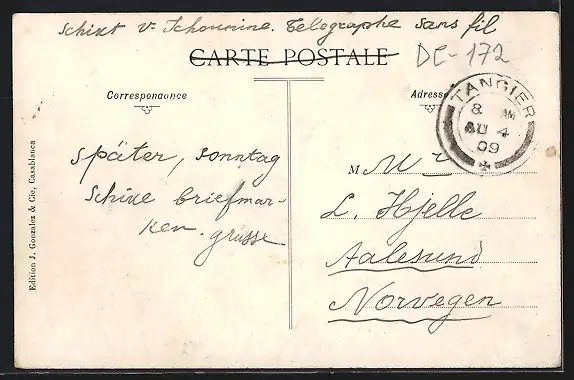 Télégraphe sans fil
CARTE POSTALE
DC-172
Correspondance
Adresse
TANGIER
8 AM
AU 4
09
später, Sonntag
briefmar-
ken. grüsse
M Mr
L. Hjelle
Aalesund
Norwegen
Edition J. Gonzalez & Cie, Casablanca